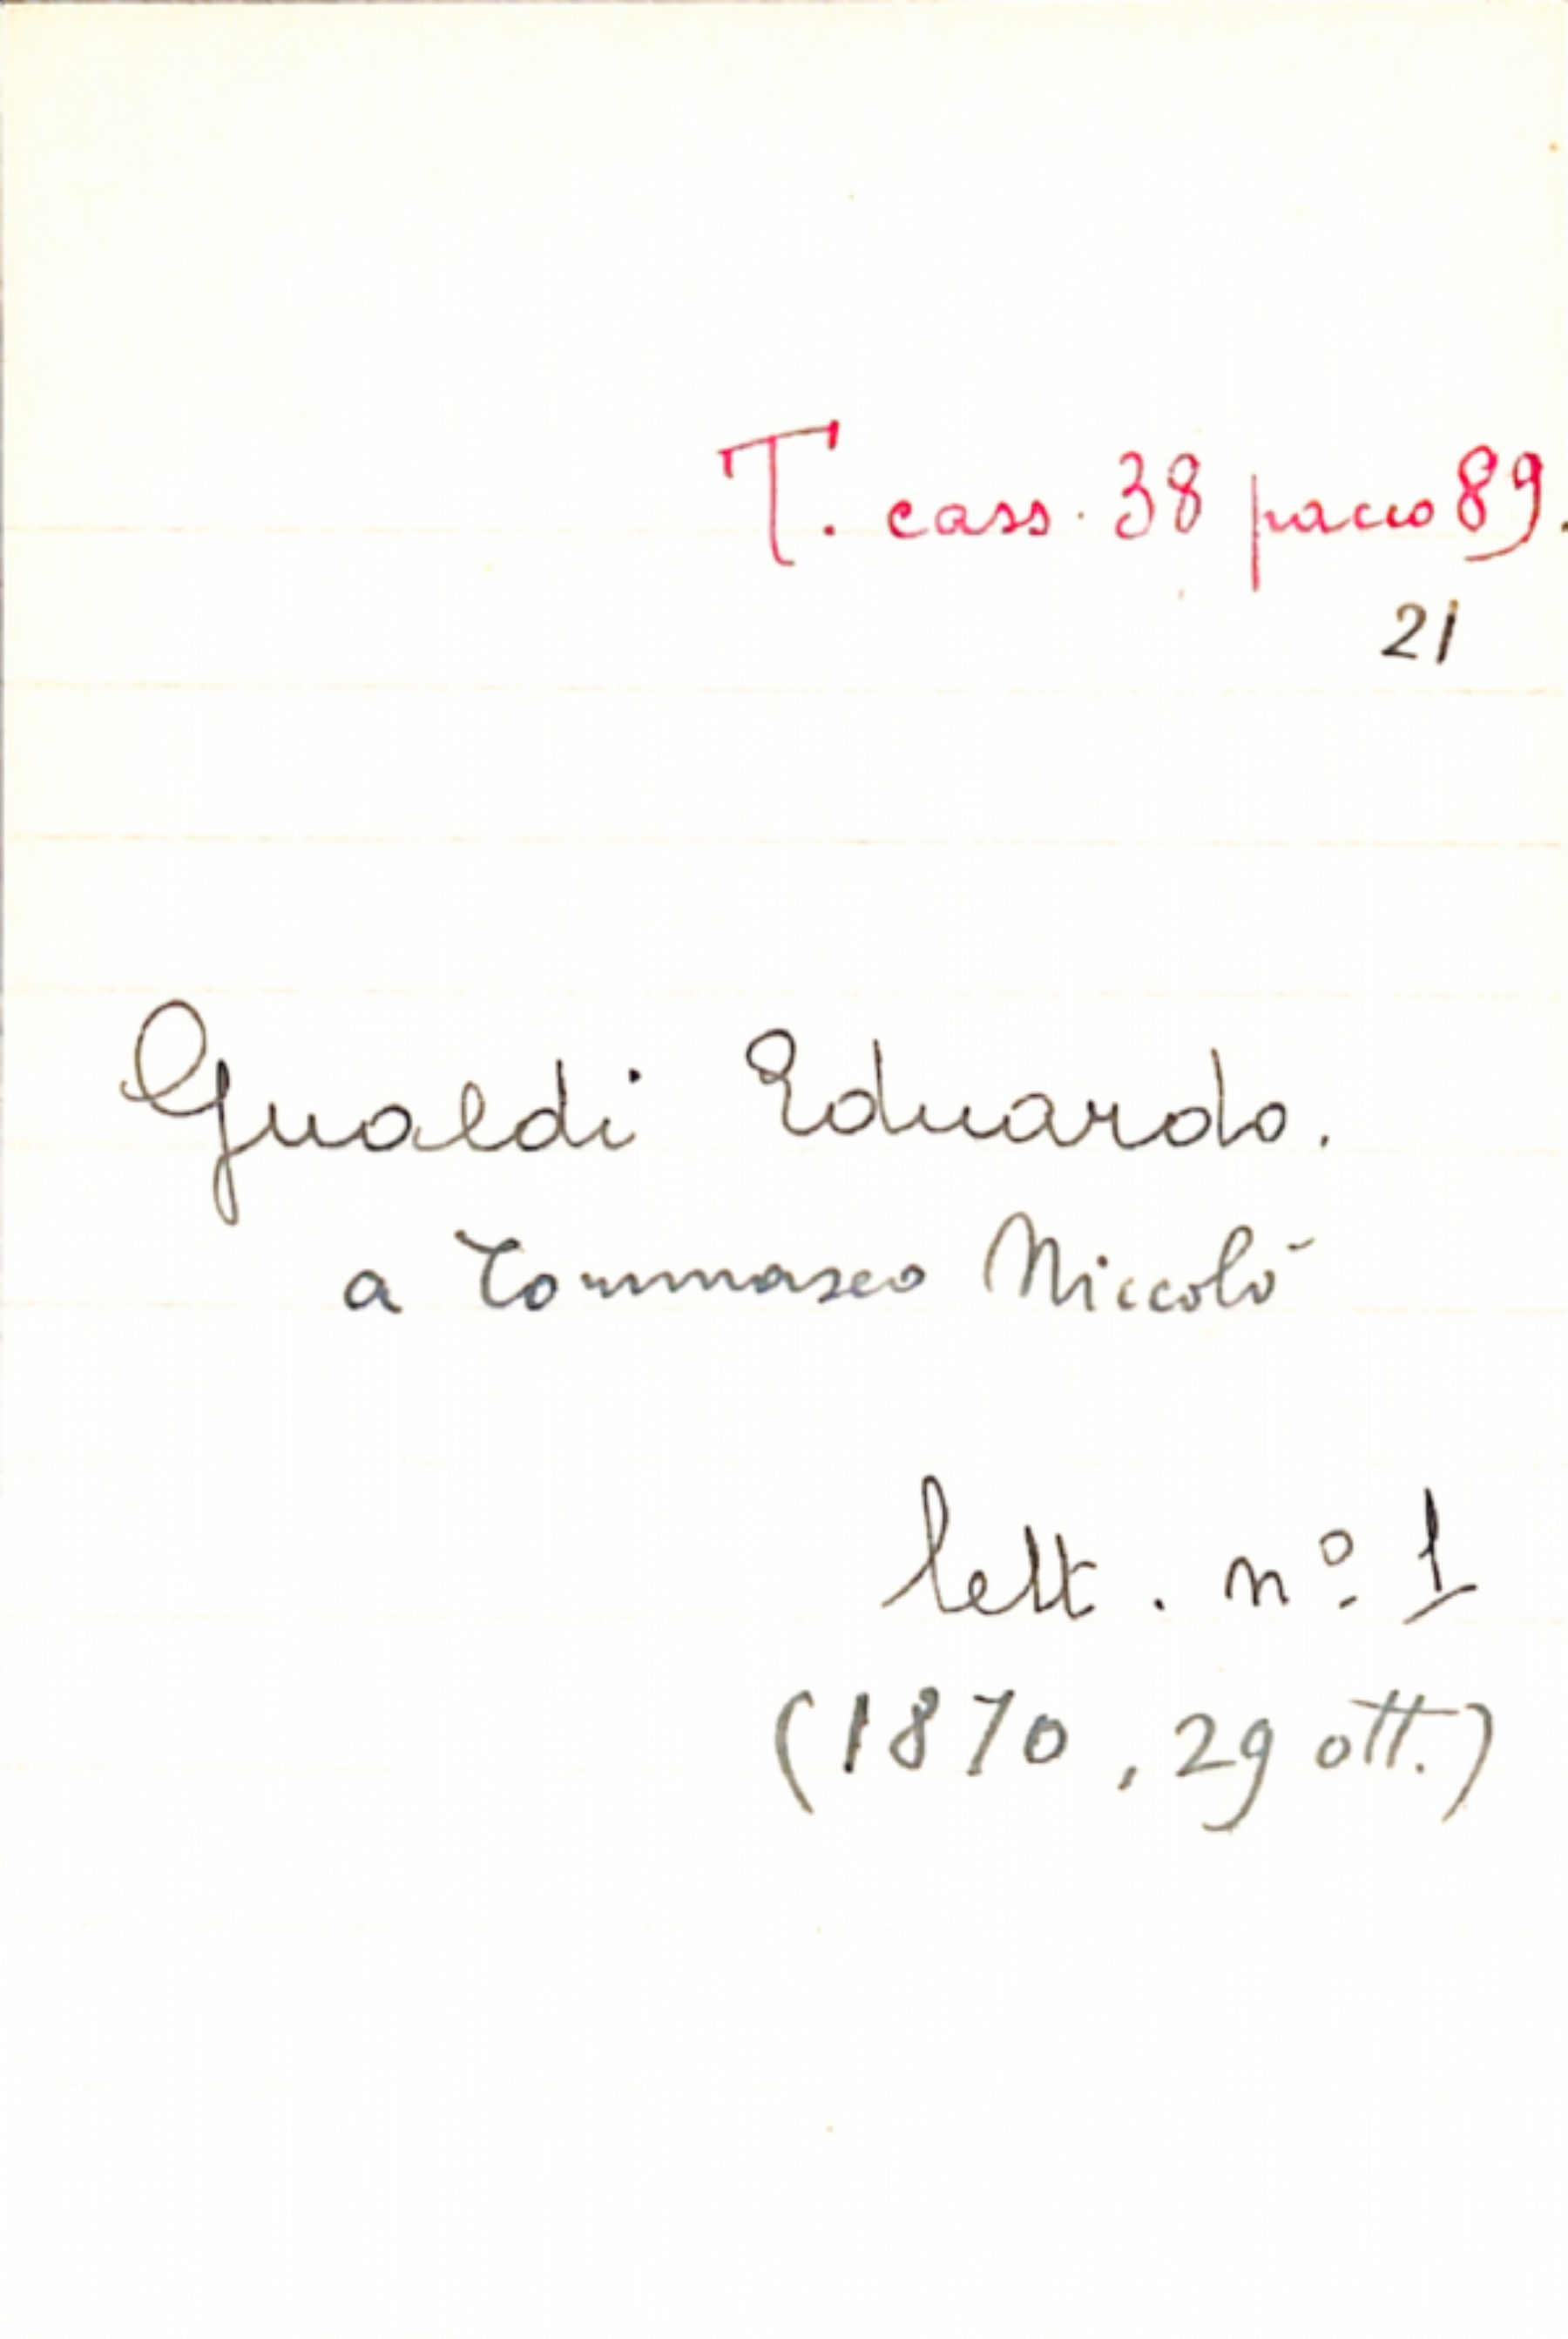 T. cass. 38 pacco 89.
21
Gualdi Eduardo.
a Tommaseo Niccolò
lett. nº 1
(1870, 29 ott.)